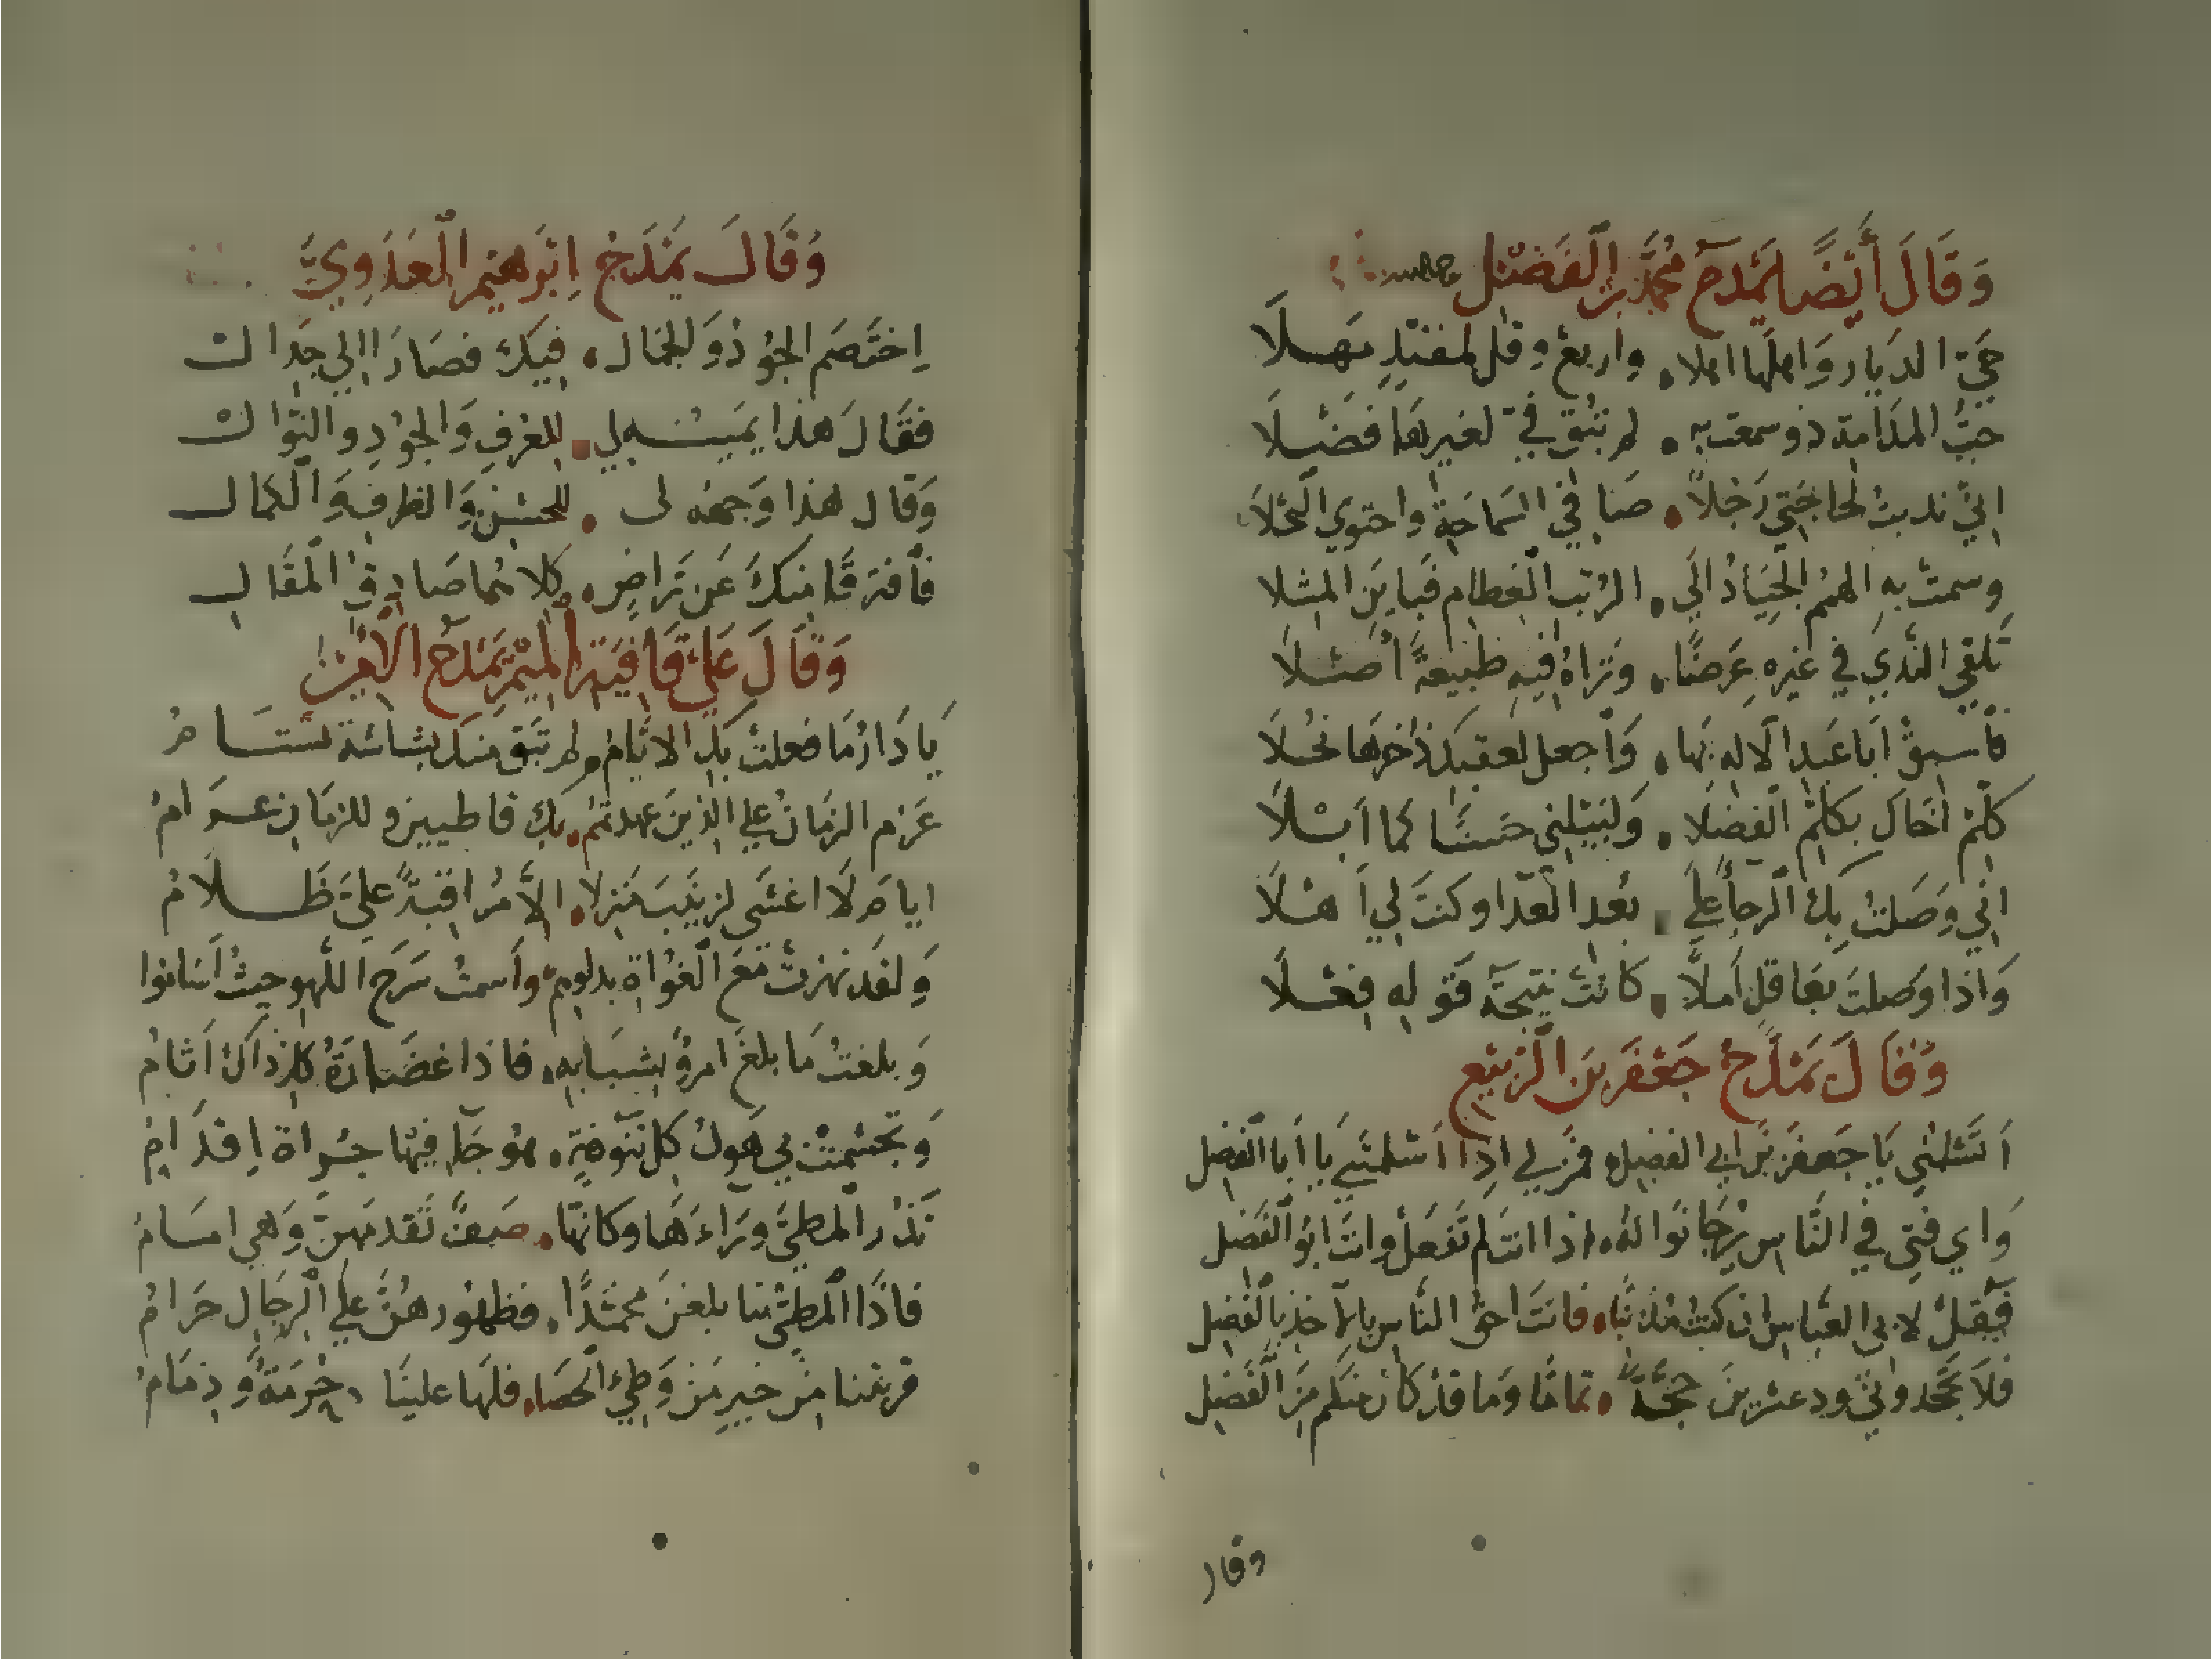 وَقَالَ أَيْضًا يَمْدَحُ مُحَمَّدَ بْنَ الْفَضْلِ
حَيِّ الديَار وَاهلَها اهلا، واربعْ وقل لمفنّدٍ مَهـلَا
حبُّ المدَامة ذو سمعت به ، لم تُبْقِ فيّ لغيرهَا فضْلَا
انّي ندبتُ لحاجَتي رَجُلاً، صَافي السَماحَةِ واحتوي
وسمتْ بهِ الهممُ الجيَادُ الَي ، الرُتب العِظام فبايَن المثلا
تَلقي النَّدَي في غيرهِ عَرضًا، وَتراهُ فيهِ طَبيعةً أصْلَا
فأسبقْ ابَا عَبد الاله بهَا، وَأجعل لعقبِكَ ذخرهَا نُحْلَا
كلِّمْ اخَاكَ يكلِّمُ الفضلا ، وَليَبْلِني حَسَنًا كما ابْلَا
اني وَصَلتُ بِكَ الرجاَ عَلي ، بُعدِ العدَا وكنتَ لي اَهْلَا
وَاذا وَصلتَ بعَاقلٍ اَملاً ، كانتْ نتيجةَ قَولهِ فعْلَا
وَقَالَ يَمْدَحُ جَعْفَرَ بْنَ الرَّبِيْعِ
أتسْلمُني يَا جَعفَرُ بنَ ابي الفضل، فمَن لي اذا اسْلمتَني يَا أبا الفضل
وَاي فتيً في النَّاس يُرجَا نَوالهُ، اذا انتَ لم تَفعَلْ وانتَ ابُو الفَضل
فقلْ لابي العبَاس ان كنتُ مُذنبًا، فانتَ احق النَّاس بالأخذ بالفضل
فلاَ تجَحَدوني ودعشرينَ حجَّةً ، تمامًا وَما قدْ كان منكم مِنَ الفَضل
وقال
وَقَالَ يَمْدَحُ اِبْرَهِيْمَ الْعَدَوِيَّ
اِختَصَم الجُودُ وَالجمال، فيكَ فصَارَا الي جِدال
فقَالَ هَذا يَمينُـهُ لي، للعُرفِ وَالجُودِ والنَّوال
وَقال هَذا وَجههُ لي ، للحُسْنِ وَالظرفِ وَالكمال
فأفترَقَا منكَ عَن تَراضٍ، كلاهُما صَادقُ المقَال
وَقَالَ عَلَى قَافِيَةِ الْمِيْمِ يَمْدَحُ الأَمِيْنَ
يَا دَارُ مَا فعلتْ بكِ الايَّامُ، لم تَبْقَ منكِ بشاشَة تستَـامُ
عَرَم الزمَانُ علي الذينَ عهدتهُم، بكِ قاطنينَ وللزمَانِ عـرَامُ
ايامَ لَا اغشَي لزينَبَ مَنزلا، الاَّ مُراقبةً عليَّ ظَـلَامُ
وَلقَد نهزتُ مَعَ الغُوَاةِ بدلوهم، وأَسمتُ سَرَحَ اللَّهو حيثُ أسَاموا
وَبلغتُ مَا بلغَ امرؤٌ بشبَابهِ، فاذا عُصَارَةُ كل ذاكَ اَثَامُ
وَتجَشمتْ بي هَولَ كل تَنُوفةٍ، هَوجَاءُ فيهَا جُـراة اِقدَامُ
تَذَرُ المطيَّ ورَاءَهَا وكانهَا، صَفٌّ تَقدمَهنَّ وَهي امَـامُ
فاذَا المَطيُّ بنا بلغنَ محمَّدًا، فظهُورهُنَّ علي الرجَال حَرامُ
قربننا مِنْ خيرِ مَن وَطِئَ الحَصَا، فلهَا علينَا ، حُرمَةٌ وَذِمَامُ